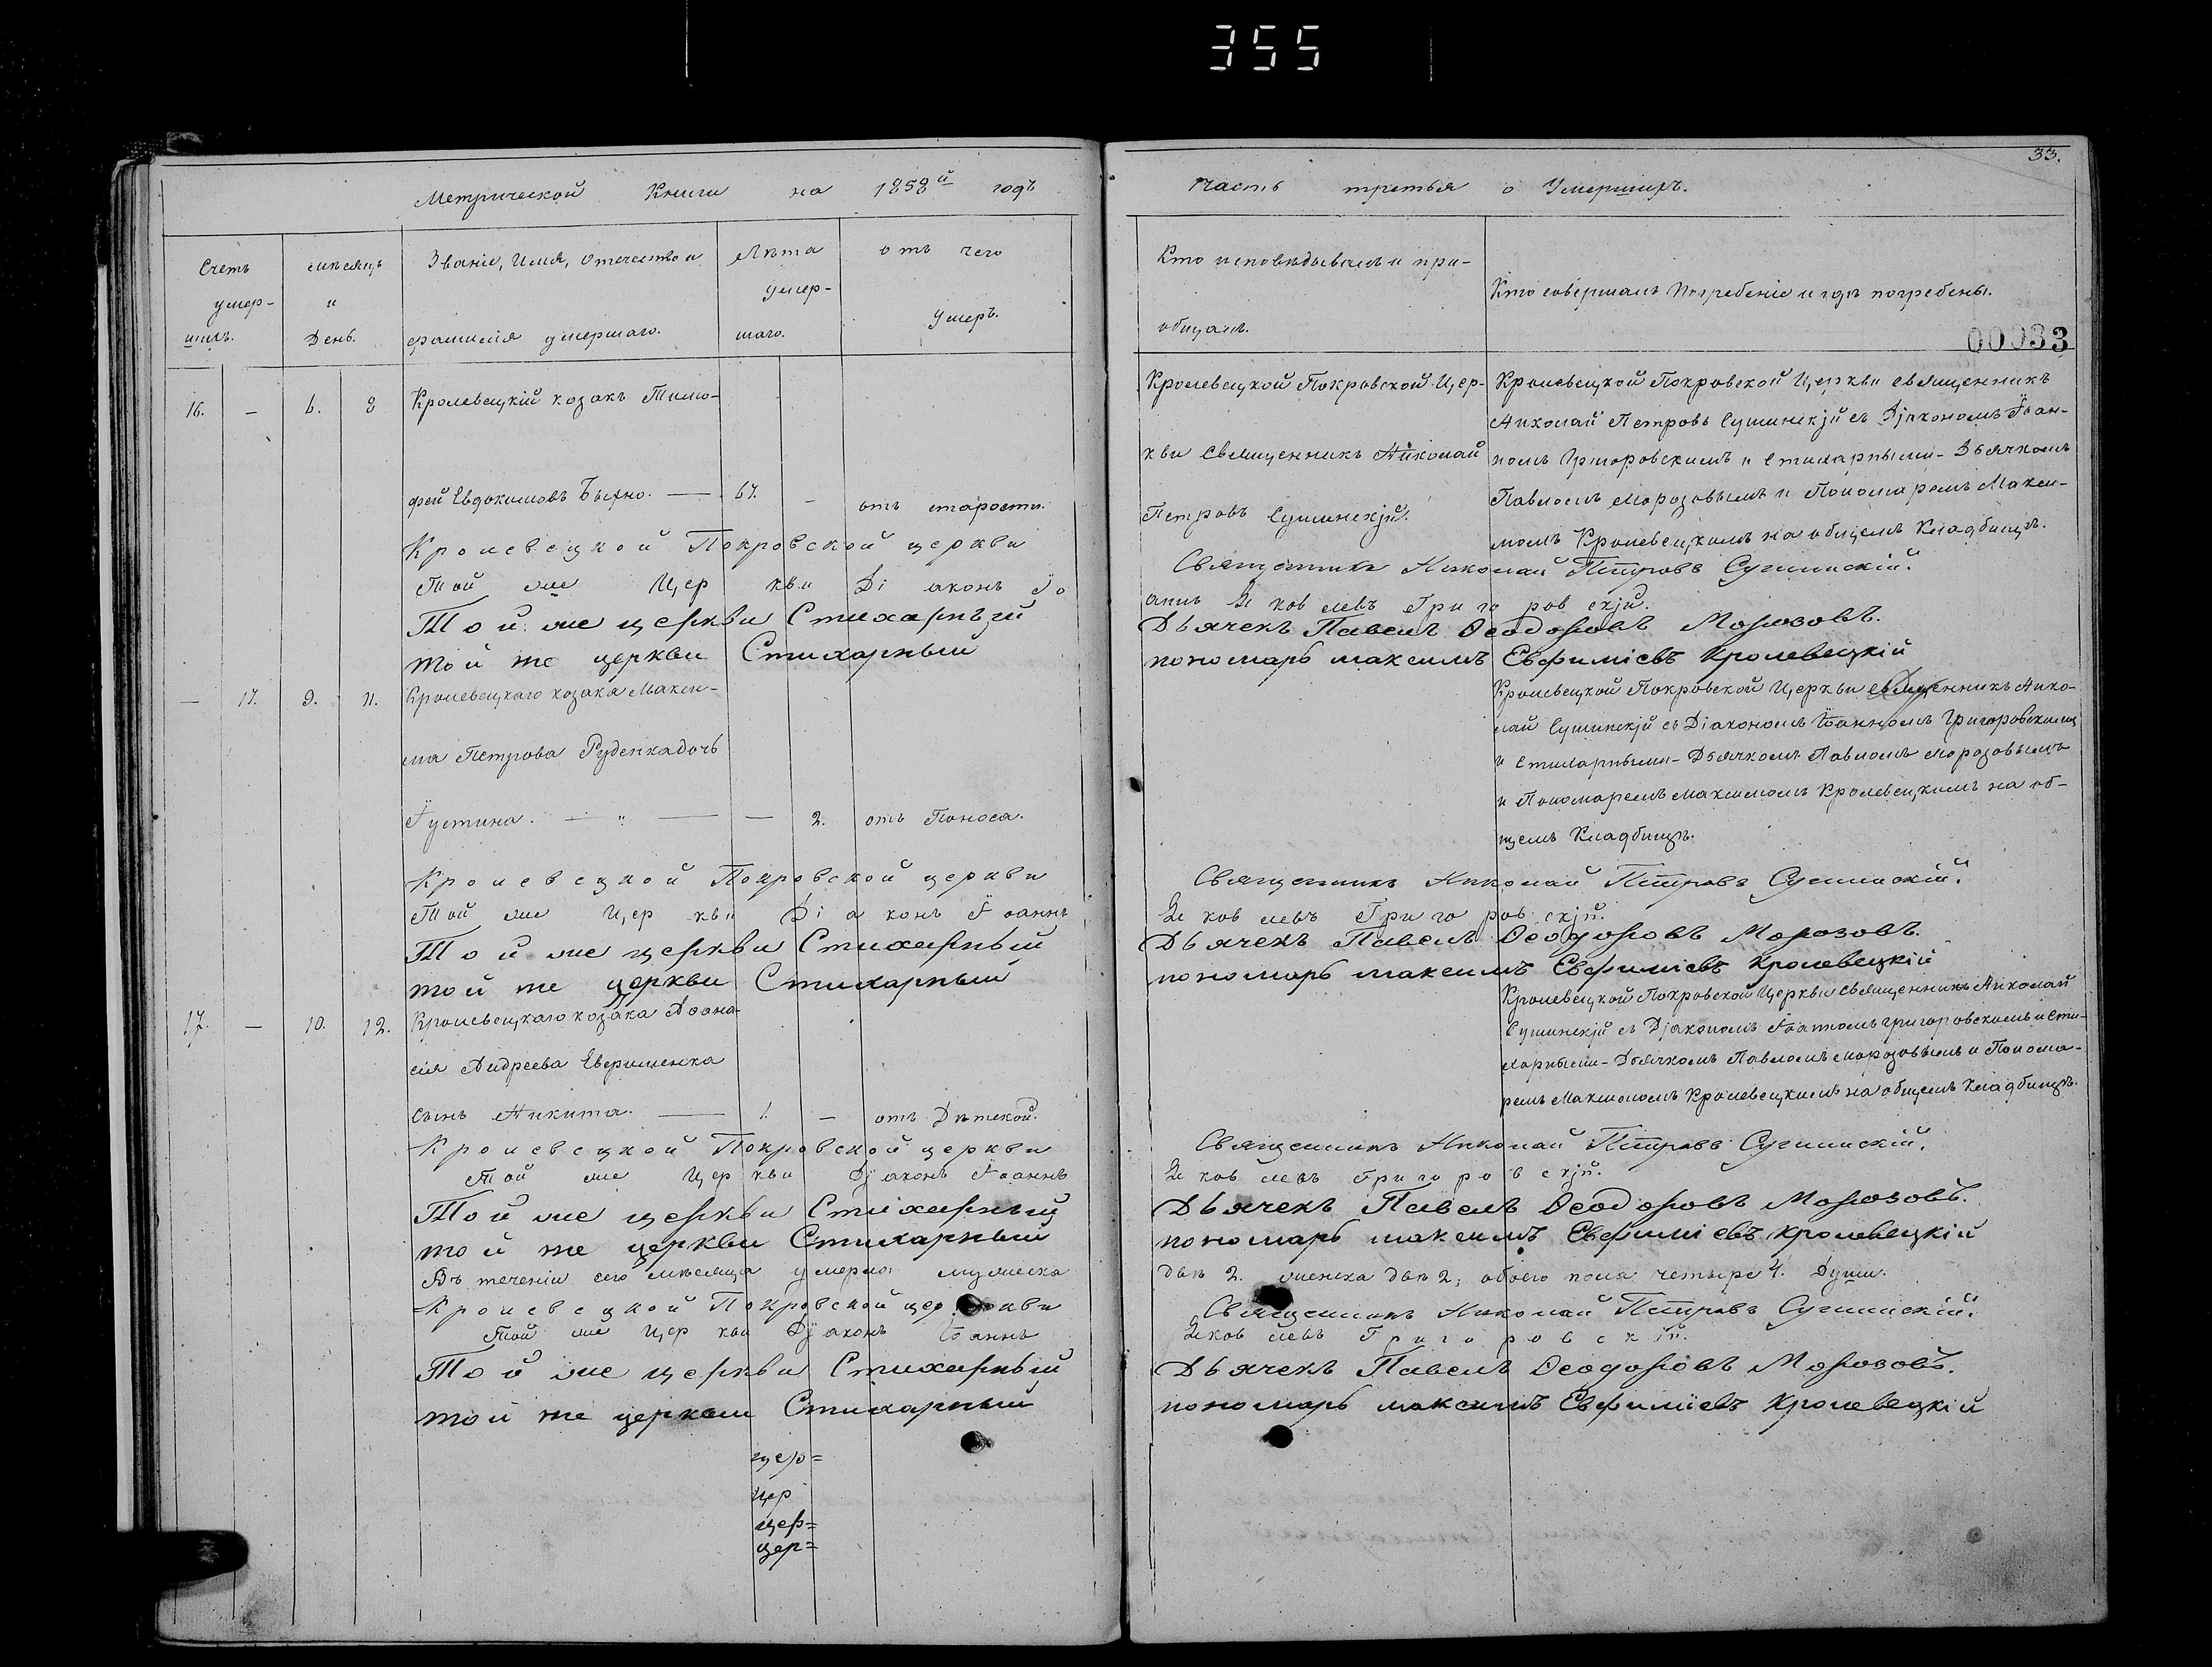 355
33.
Метрической Книги на 1858й годъ
Счетъ умер-шихъ.
мѣсяцъ и День.
Званіе, Имя, Отечество и
фамилія умершаго.
Лѣта умер-шаго.
отъ чего умеръ.
16. — 6. 8 Кролевецкій козакъ Тимо-
фей Евдокимовъ — 67. — отъ старости.
Кролевецкой Покровской церкви
Той же Цер кви Ді аконъ Іо
Той же церкви Стихарный
той же церкви Стихарный
— 17. 9. 11. Кролевецкаго козака Макси-
ма Петрова Руденка дочь
Іустина. — „ — — 2. отъ Поноса.
Кролевецкой Покровской церкви
Той же Цер кви Ді а конъ Іоаннъ
Той же церкви Стихарный
той же церкви Стихарный
17. — 10. 12. Кролевецкаго козака Аѳана-
сія Андреева
сынъ Никита. — 1. — отъ Дѣтской.
Кролевецкой Покровской церкви
Той же Цер кви Діаконъ Іоаннъ
Той же церкви Стихарный
той же церкви Стихарный
Въ теченіи сего мѣсяца умерло: мужеска
Кролевецкой Покровской цер кви
Той же Цер кви Діаконъ Іоаннъ
Той же церкви Стихарный
той же церкви Стихарный
цер=
цер
цер=
цер=
Часть третья о Умершихъ.
Кто исповѣдывалъ и при-
общалъ.
Кто совершалъ Погребеніе и гдѣ погребены.
00033
Кролевецкой Покровской Цер-
кви Священникъ Николай
Петровъ Сушинскій.
Кролевецкой Покровской Церкви священникъ
Николай Петровъ Сушинскій съ Діакономъ Іоан-
номъ Григоровскимъ и Стихарными - Дьячкомъ
Павломъ Морозовымъ и Пономаремъ Макси-
момъ Кролевецкимъ на общемъ Кладбищѣ.
Священникъ Николай Петровъ Сушинскій.
аннъ Яковлевъ Григоровскій.
Дьячекъ Павелъ Ѳеодоровъ Морозовъ.
пономарь максимъ Евфиміевъ Кролевецкій
Кролевецкой Покровской Церкви священникъ Нико-
лай Сушинскій съ Діакономъ Іоанномъ Григоровскимъ
и Стихарными - Дьячкомъ Павломъ Морозовымъ
и Пономаремъ Максимомъ Кролевецкимъ на об-
щемъ Кладбищѣ.
Священникъ Николай Петровъ Сушинскій.
Яковлевъ Григоровскій.
Дьячекъ Павелъ Ѳеодоровъ Морозовъ.
пономарь максимъ Евфиміевъ Кролевецкій
Кролевецкой Покровской Церкви Священникъ Николай
Сушинскій съ Діакономъ Іоанномъ Григоровскимъ и Сти-
харными - Дьячкомъ Павломъ Морозовымъ и Понома-
ремъ Максимомъ Кролевецкимъ на общемъ Кладбищѣ.
Священникъ Николай Петровъ Сушинскій.
Яковлевъ Григоровскій.
Дьячекъ Павелъ Ѳеодоровъ Морозовъ.
пономарь максимъ Евфиміевъ Кролевецкій
двѣ 2. женска двѣ 2; обоего пола четыре 4. Души.
Священникъ Николай Петровъ Сушинскій.
Яковлевъ Григоровскій.
Дьячекъ Павелъ Ѳеодоровъ Морозовъ.
пономарь максимъ Евфиміевъ Кролевецкій